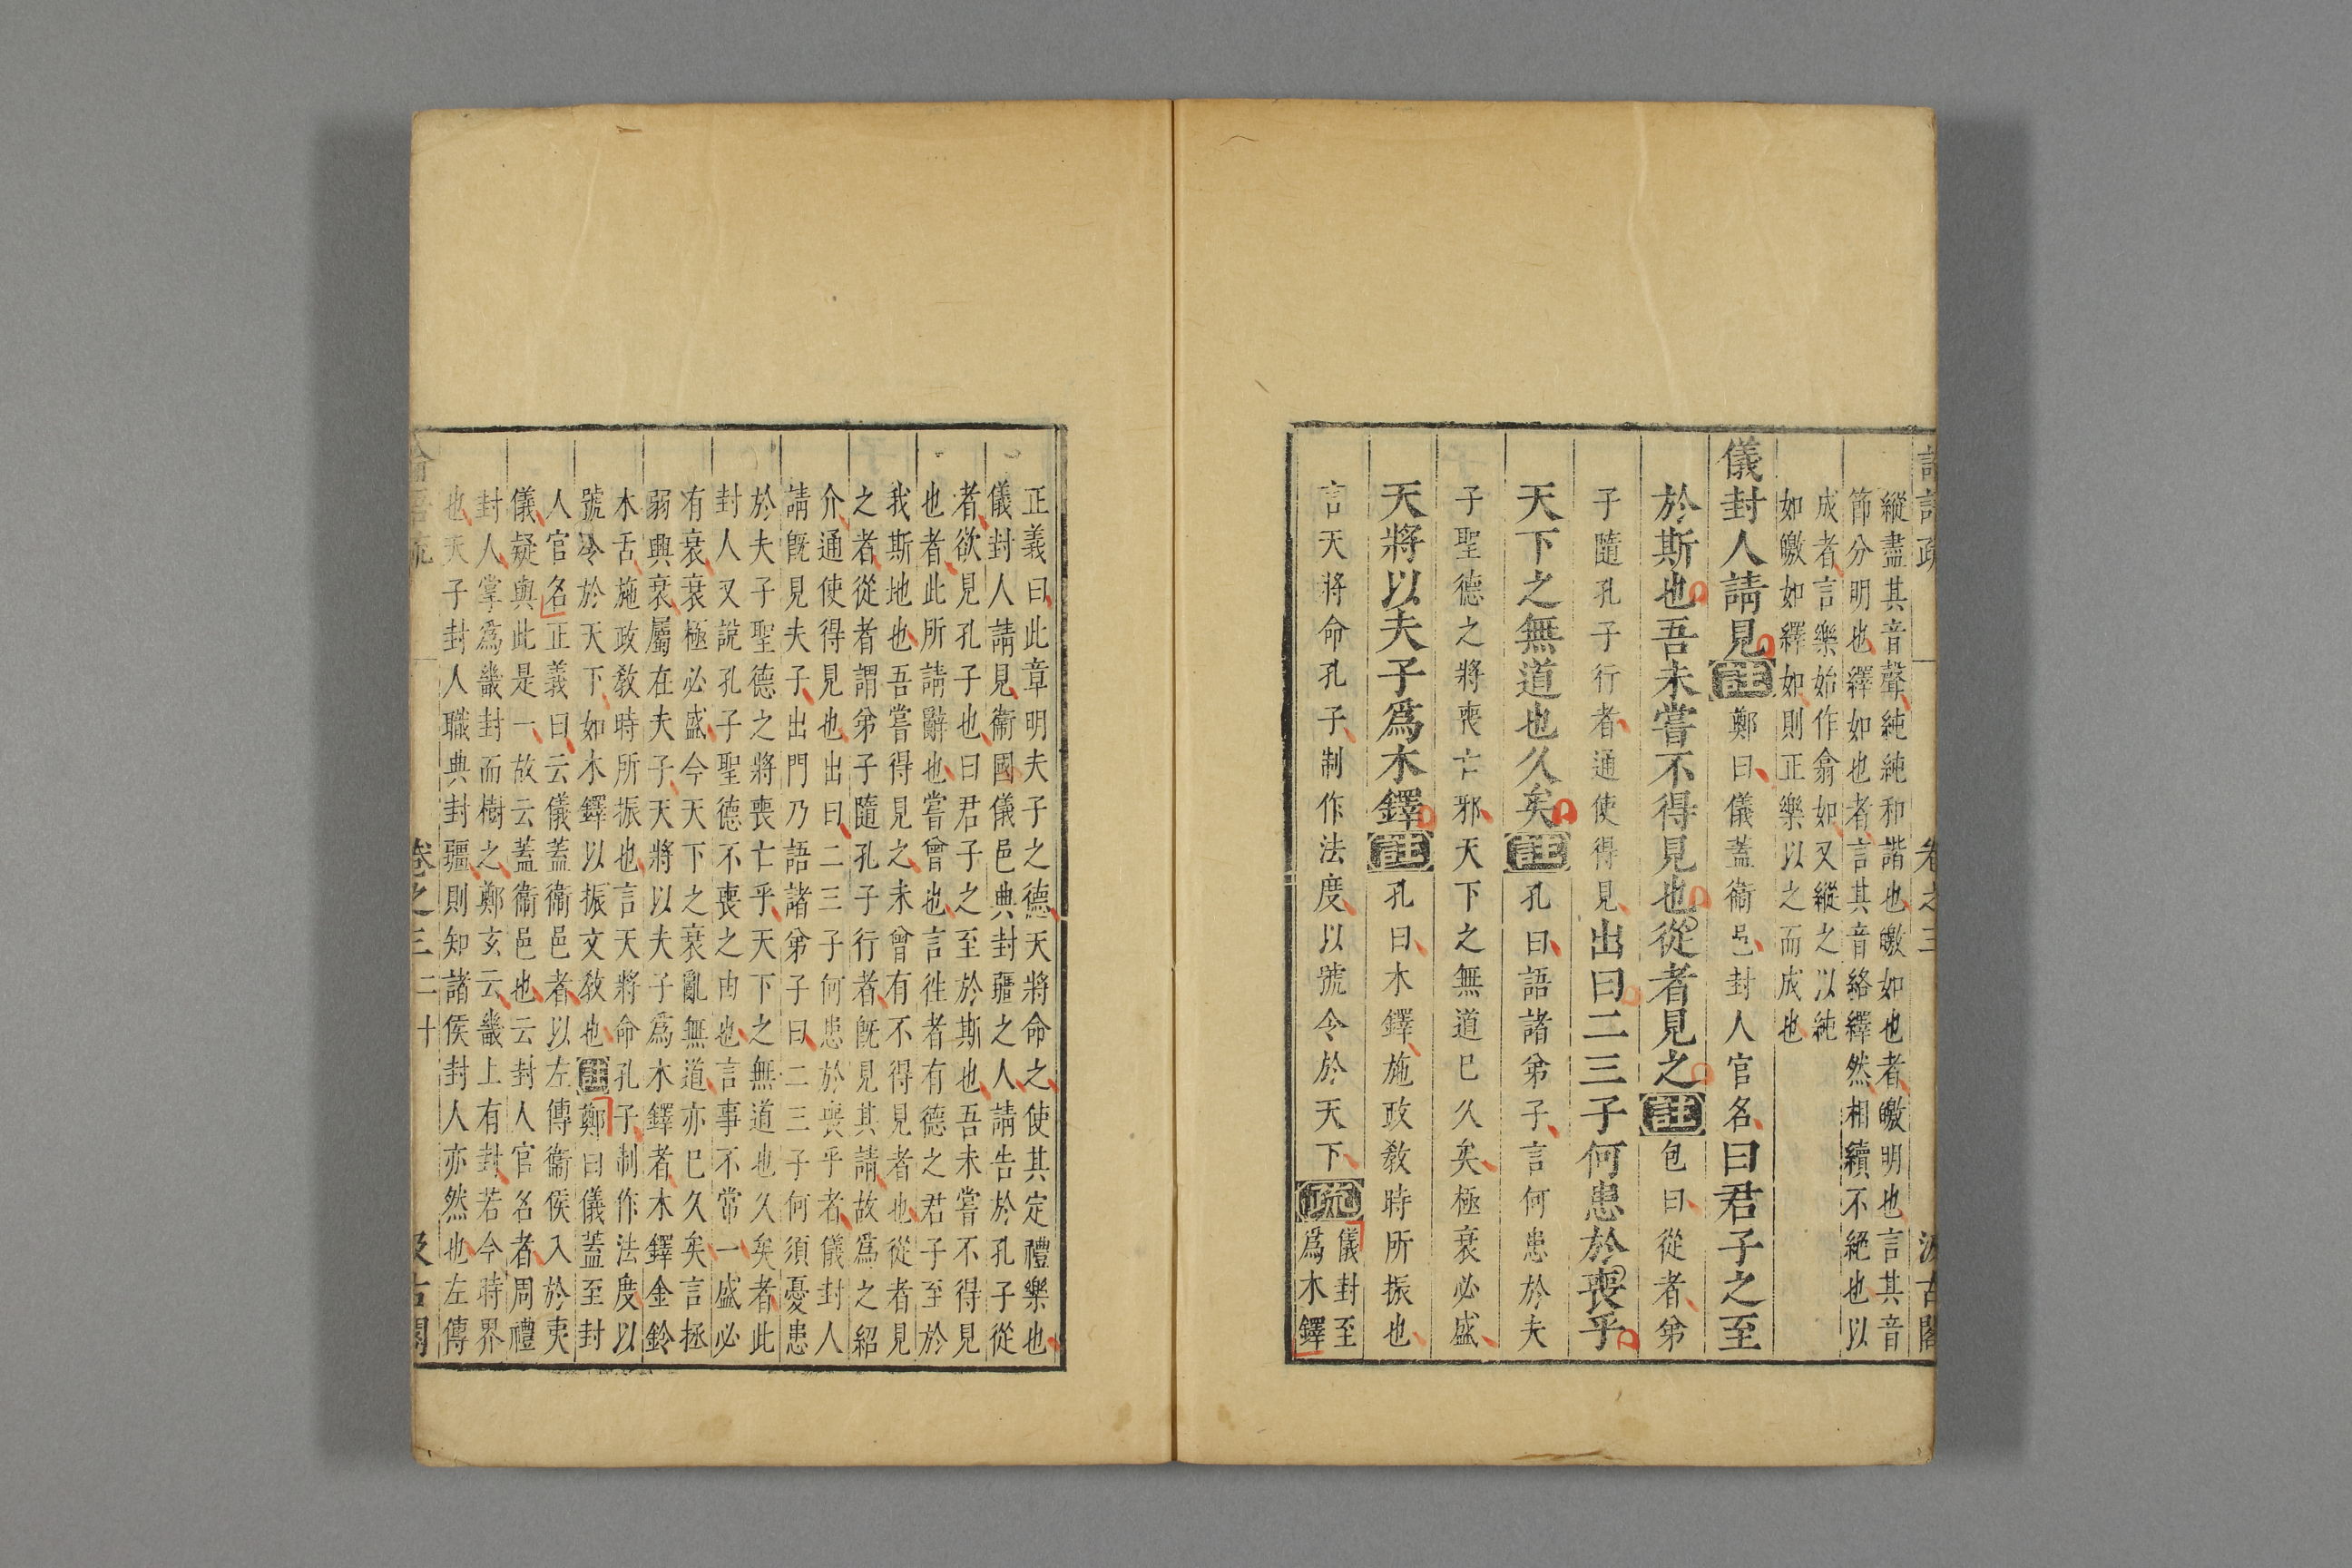 縱盡其音聲純純和諧也皦如也者皦明也言其音
節分明也繹如也者言其音絡繹然相續不絕也以
成者言樂始作翕如又縱之以純
如皦如繹如則正樂以之而成也
儀封人請見註鄭曰儀蓋衞邑封人官名曰君子之至
於斯也吾未嘗不得見也從者見之註包曰從者弟
子隨孔子行者通使得見出曰二三子何患於喪乎
天下之無道也久矣註孔曰語諸弟子言何患於夫
子聖德之將喪亡邪天下之無道已久矣極衰必盛
天將以夫子爲木鐸註孔曰木鐸施政敎時所振也
言天將命孔子制作法度以號令於天下疏儀封至
爲木鐸
正義曰此章明夫子之德天將命之使其定禮樂也
儀封人請見衞國儀邑典封疆之人請告於孔子從
者欲見孔子也曰君子之至於斯也吾未嘗不得見
也者此所請辭也嘗曾也言往者有德之君子至於
我斯地也吾嘗得見之未曾有不得見者也從者見
之者從者謂弟子隨孔子行者旣見其請故爲之紹
介通使得見也出曰二三子何患於喪乎者儀封人
請旣見夫子出門乃語諸弟子曰二三子何須憂患
於夫子聖德之將喪亡乎天下之無道也久矣者此
封人又說孔子聖德不喪之由也言事不常一盛必
有衰衰極必盛今天下之衰亂無道亦已久矣言拯
弱興衰屬在夫子天將以夫子爲木鐸者木鐸金鈴
木舌施政敎時所振也言天將命孔子制作法度以
號令於天下如木鐸以振文敎也註鄭曰儀蓋至封
人官名正義曰云儀蓋衞邑者以左傳衞侯入於夷
儀疑與此是一故云蓋衞邑也云封人官名者周禮
封人掌爲畿封而樹之鄭玄云畿上有封若今時界
也天子封人職典封疆則知諸侯封人亦然也左傳
卷之三 二十